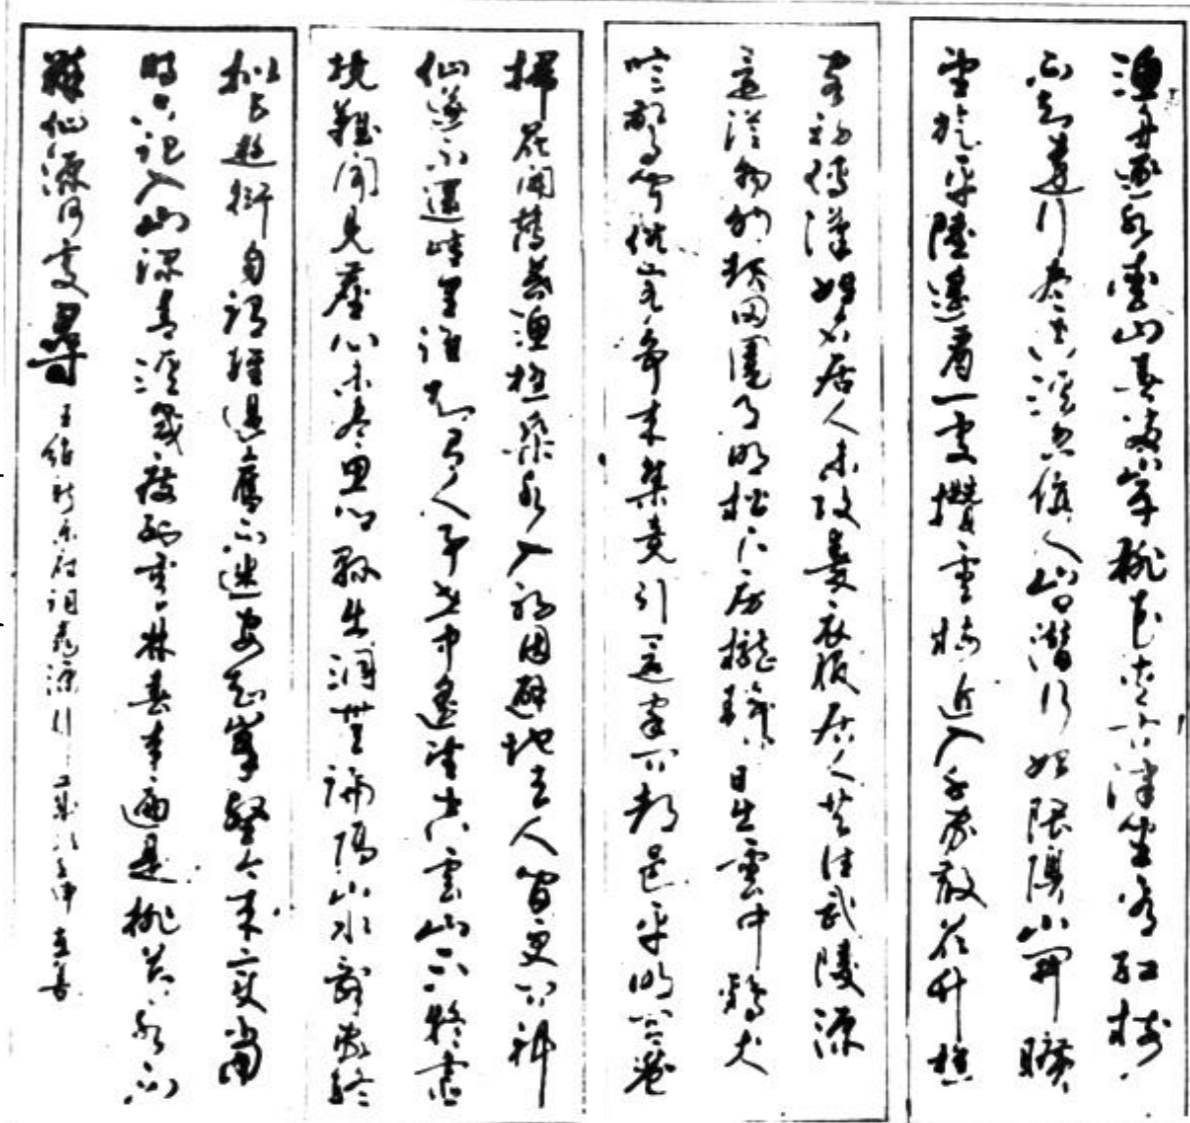 漁舟逐水愛山春兩岸桃花夾古津坐看紅樹
不知遠行盡青溪忽值人山口潛行始隈隩山開曠
望旋平陸遙看一處攢雲樹近入千家散花竹樵
客初傳漢姓名居人未改秦衣服居人共住武陵源
還從物外起田園月明松下房櫳靜日出雲中鷄犬
喧驚聞俗客爭來集競引還家問都邑平明閭巷
掃花開薄暮漁樵乘水入初因避地去人間更問神
仙遂不還峽里誰知有人事世中遙望空雲山不疑靈
境難聞見塵心未盡思鄉縣出洞無論隔山水辭家終
擬長遊衍自謂經過舊不迷安知峯壑今來變當
時只記入山深青溪幾度到雲林春來遍是桃花水不
辨仙源何處尋 王維新樂府詞桃源行